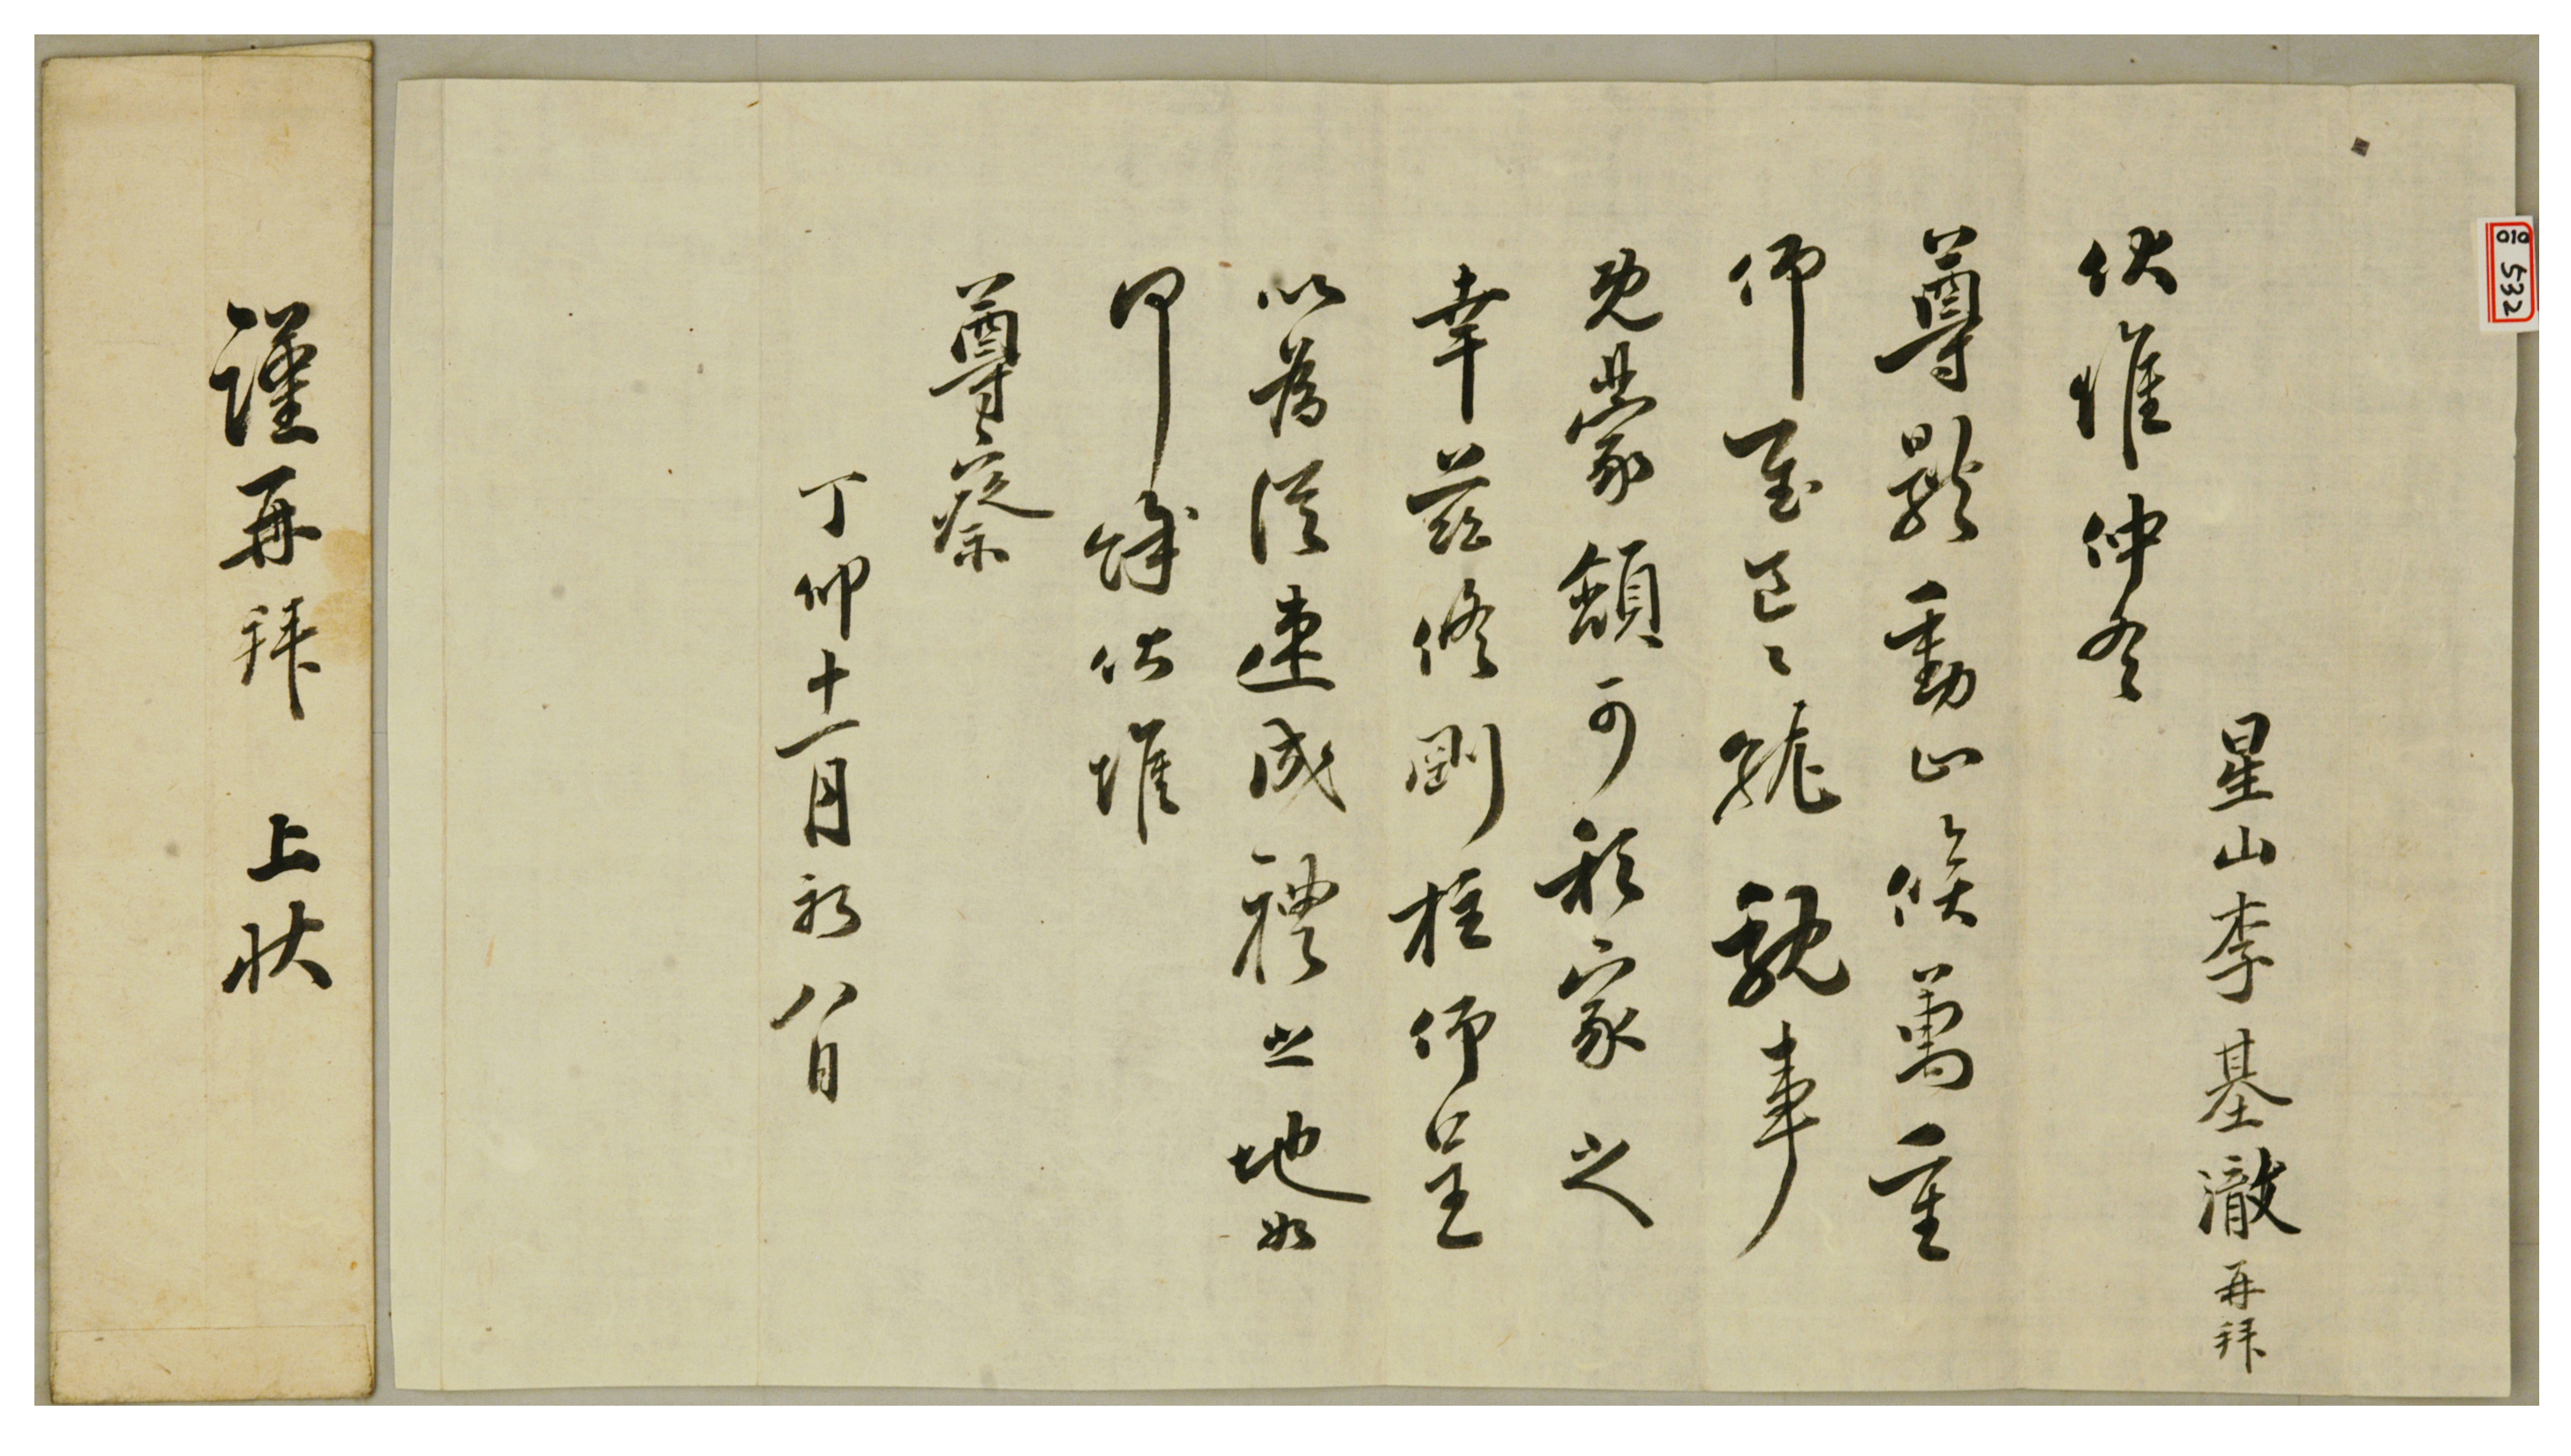 010 532
星山李基澈再拜
伏惟仲冬
尊體動止候萬重
仰慰區〻就親事
既蒙頷可私家之
幸茲修剛柱仰呈
以爲從速成禮之地如
何餘伏惟
尊察
丁卯十一月初八日
謹再拜 上狀